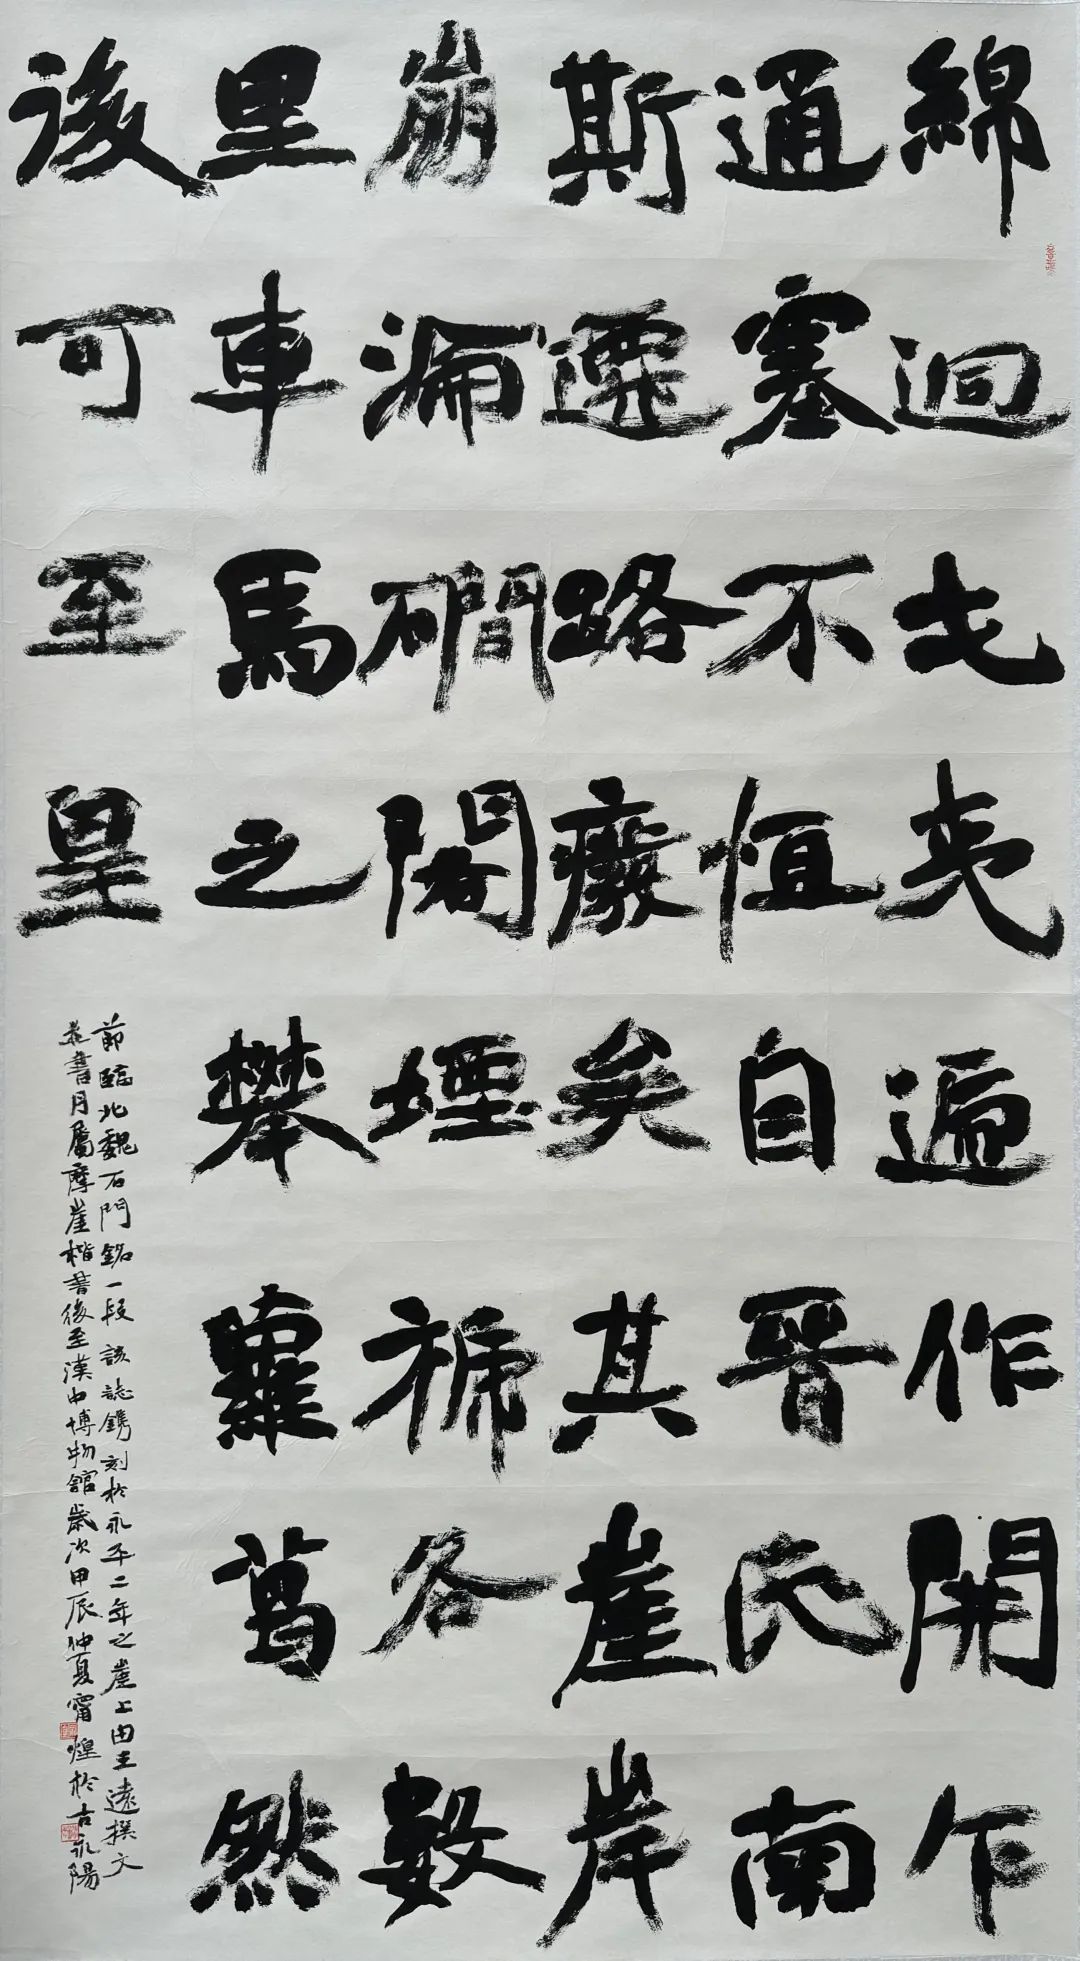 綿迴戎夷遞作開乍
通塞不恒自晉氏南
斯遷路癈矣其崖岸
崩淪磵閣堙褫各數
里車馬之攀蘿葛然
後可至皇
節臨北魏石門銘一段該誌鐫刻於永平二年之崖上由王遠撰文
並書丹屬摩崖楷書後至漢中博物館歲次甲辰仲夏甯煌於古永陽